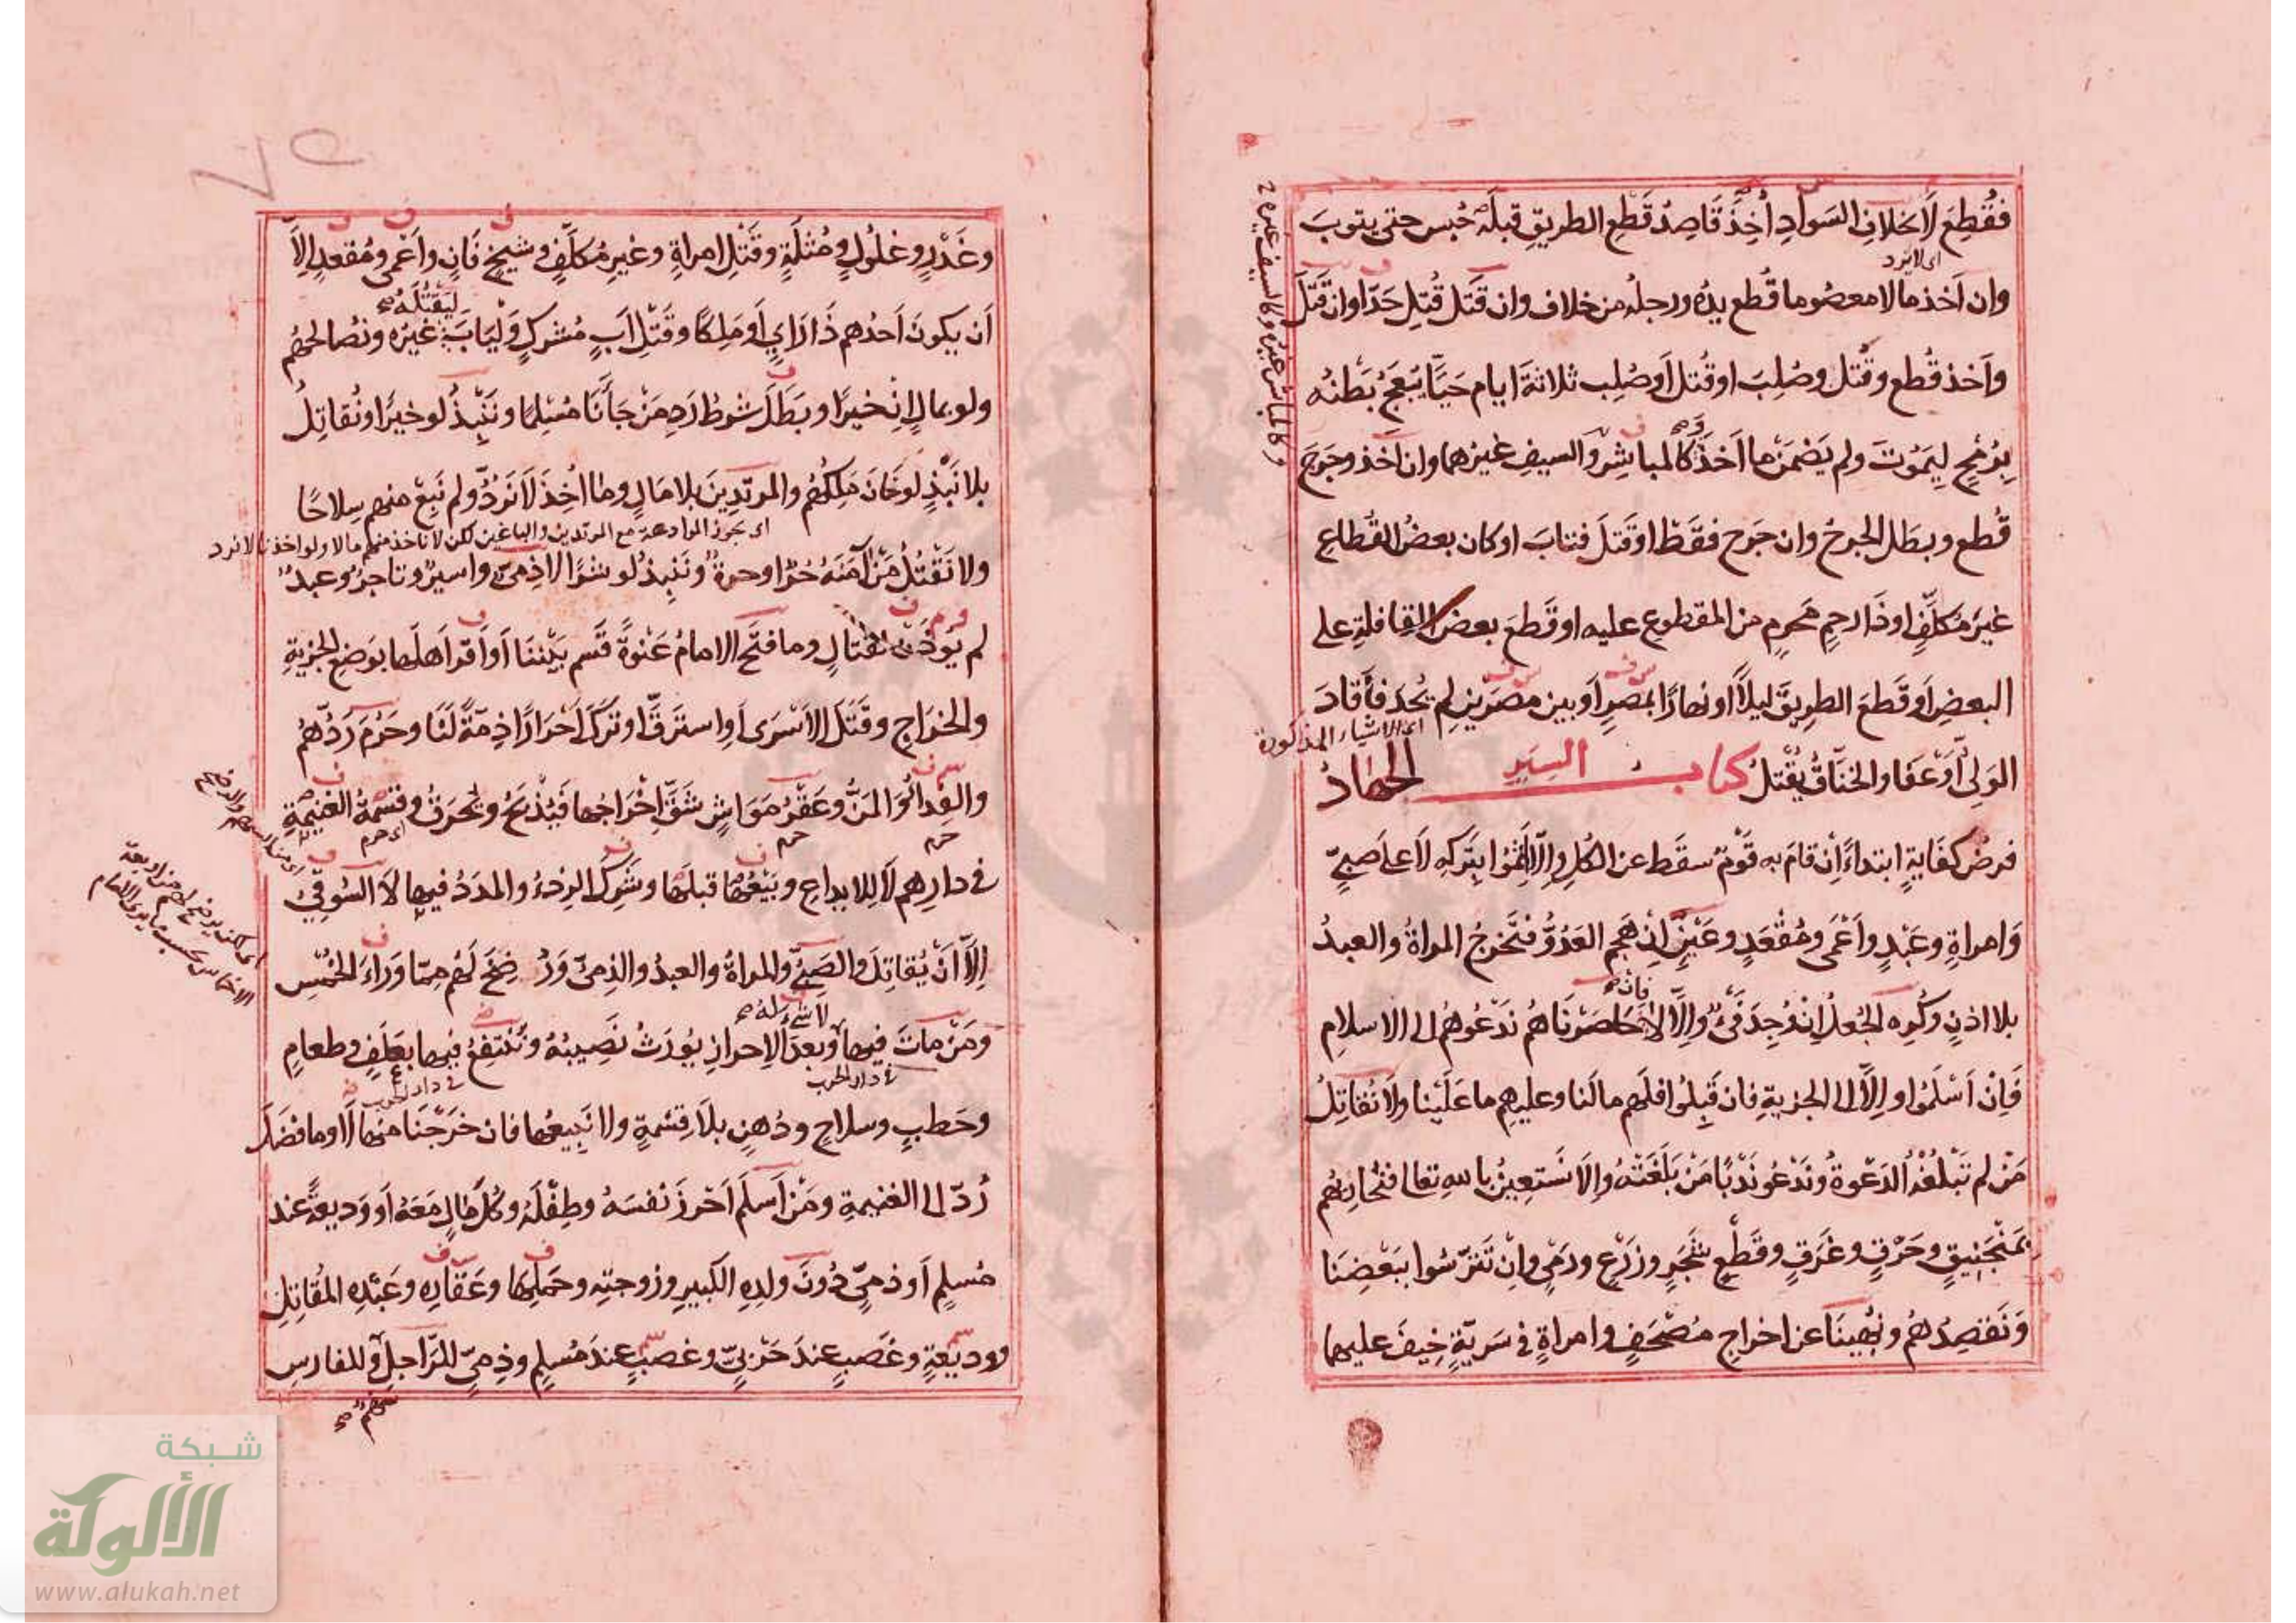 فقُطِعَ لَا بخلافِ السَوادِ أُخِذَ قَاصِدُ قَطْعِ الطريقِ قبلَهُ حُبس حتى يتوبَ
وان اَخذ مالا معصُوما قُطع يدُه ورجلُه من خلاف وان قَتَل قُتِل حَدّا وان قَتَلَ
اى لا يرد
واَخذ قُطع وقُتل وصُلِبَ او قُتل اَو صُلِب ثلاثةَ ايام حَيًّا يُبعَجُ بَطْنُه
بِرُمْحٍ لِيَمُوْتَ ولم يَضْمَنْ ما اَخَذَ وَكالمباشِرِ والسيفِ غيرُهما وان اَخذ وجَرَحَ
قُطع وبطَل الجرحُ وان جَرَح فقَطْ او قَتَلَ فتابَ او كان بعضُ القُطاعِ
غيرَ مُكلَّفٍ او ذَا رحِمٍ مَحرمٍ من المقطوع عليه او قَطَعَ بعضُ القافلةِ على
البعضِ اَو قَطَعَ الطريقَ ليلاً او نهارًا بمصرٍ اَو بين مصرَيْنِ لم يُحدَ فأَقادَ
اى الاشياء المذكورة
الوَلِىُّ اَوْ عفَا والخنّاقُ يُقْتلُ كتاب السِيَرِ الجهادُ
فرضُ كفايةٍ ابتداءً اِنْ قامَ به قَوْمٌ سقَط عن الكُلِ واِلاّ اَثِمُوا بِتَركِه لا على صبىٍّ
وَامراةٍ وعَبْدٍ واَعْمَى ومُقْعَدٍ وعَيْنٍ اِنْ هَجم العَدُوُّ فتَخرجُ المراةُ والعبدُ
بلا اذنٍ وكُرِه الجُعلُ اِنْ وُجِدَ فَىْءٌ واِلاَّ لا فان حاصَرْنَاهُم نَدْعُوهُم الى الاسلامِ
فَاِنْ اَسْلَمُوا واِلاَّ الى الجزيةِ فان قَبِلُوا فلَهم ما لَنا وعليهِم ما عَلَيْنا ولا نُقاتِلُ
مَنْ لم تَبْلُغْهُ الدَعْوةُ ونَدْعُو نَدْبًا مَنْ بَلَغَتْهُ واِلا نَستعِينُ بالله تعالى فنُحاربُهم
بمَنْجَنِيقٍ وحَرْقٍ وغَرَقٍ وقَطْعِ شَجَرٍ وزَرْعٍ ورَمْىٍ واِنْ تَتَرَّسُوا ببَعْضِنَا
وَنَقصِدُهُم ونُهِينَا عن اخراجِ مُصْحَفٍ وامراةٍ فى سَريَّةٍ خِيفَ عليهما
٧٥
وغَدْرٍ وغلُولٍ ومُثْلَةٍ وقَتْلِ امراةٍ وغيرِ مُكلَّفٍ وشيخٍ فَانٍ واَعْمى ومُقعدٍ اِلاَّ
اَن يكونَ اَحدُهم ذَا رَاىٍ اَو مَلِكًا وقَتْلِ اَبٍ مُشركٍ وَلْيَابَ لِيَقْتُلَهُ غيرُه ونُصالحُهُم
ولو بمالٍ اِنْ خيرًا وبَطَلَ شرطُ رَدِ مَنْ جَأَنَا مُسْلِمًا ونَنْبِذُ لو خيرًا ونُقاتِلُ
بلا نَبْذٍ لو خَانَ مَلِكُهُم والمرتَدِينَ بلا مَالٍ وما اُخِذَ لَا نَرُدُّ ولم نَبِعْ منهم سِلاحًا
اى يجوز الموادعة مع المرتدين والباغين لكن لا ناخذ منهم مالا ولو اخذنا لا نرد
ولا نَقْتُلُ مَنْ آمَنَهُ حُرٌّ او حرةٌ ونَنبِذُ لو شرًا لا ذِمىٌّ واسيرٌ وتاجرٌ وعبدٌ
لم يُوذَنْ بقتالٍ وما فتَح الامامُ عَنْوةً قَسَم بَيْننَا اَو اَقَر اَهلَها بوَضِعِ الجزيةِ
والخرَاجِ وقَتَلَ الاَسْرَى اَوِ استرَقَّ او تَركَ اَحْرارًا ذِمّةً لَنَا وحَرُمَ رَدُّهُم
والفِدائُ وَالمَنُّ وعَقْرُ مَوَاشٍ شَقَّ اِخْرَاجُها فَتُذْبَحُ وتُحْرَقُ وقسْمةُ الغنيمةِ
حرم حرم اى حرم
فى دارِهم لا للايداعِ وبَيْعُها قبلَها وشَرِكَ الرِدءُ والمدَدُ فيها لا السُوقِىُّ
اِلاَّ اَنْ يُقاتِلَ والصَبِىُّ والمراةُ والعبدُ والذمىُّ وَرُضِخَ لَهُم مِمّا وَرَاءَ الخُمُسِ
ومَنْ ماتَ فيها لا شىء له وبعدَ الاِحرازِ يُورَثُ نَصِيبُهُ ونَنْتفِعُ فيها بعَلَفٍ وطعامٍ
فى دار الحرب فى دار الحرب
وحَطبٍ وسلاحٍ ودُهنٍ بلَا قِسْمةٍ ولا نَبِيعُها فان خَرَجْنَا منها لَا وما فضَلَ
رُدّ الى الغنيمةِ ومَنْ اَسلَم اَحْرزَ نَفسَهُ وطِفْلَهُ وكُلَّ مالٍ مَعَهُ اَو وَديعةً عند
مُسلِمٍ اَو ذمىٍّ دُونَ ولدِهِ الكَبيرِ وزوجتِه وحَملِها وعَقارِه وعَبْدِه المُقاتِلِ
ووديعةٍ وغَصبٍ عندَ حَرْبىٍّ وغصبٍ عندَ مُسلِمٍ وذِمىٍّ للرَاجلِ وللفارسِ
سهم
شبكة
الألوكة
www.alukah.net